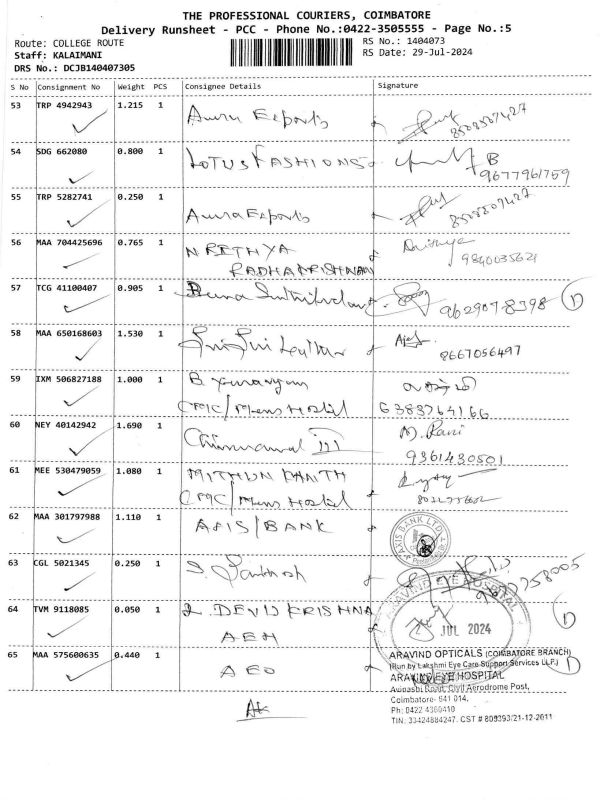 THE PROFESSIONAL COURIERS, COIMBATORE
Delivery Runsheet - PCC - Phone No.:0422-3505555 - Page No.:5
Route: COLLEGE ROUTE RS No.: 1404073
Staff: KALAIMANI RS Date: 29-Jul-2024
DRS No.: DCJB140407305
S No Consignment No Weight PCS Consignee Details Signature
53 TRP 4942943 1.215 1 Aura Exports
54 SDG 662080 0.800 1 LOTUS FASHIONS
9677961759
55 TRP 5282741 0.250 1
Aura Exports
56 MAA 704425696 0.765 1 NRITHYA
RADHAKRISHNAN 9840035621
57 TCG 41100407 0.905 1 9629078398 D
58 MAA 650168603 1.530 1
8667056497
59 IXM 506827188 1.000 1 B.
CMC/Mens Hostel 6383764166
60 NEY 40142942 1.690 1 M. Rani
9361430501
61 MEE 530479059 1.080 1 MITHUN
CMC/Mens Hostel
62 MAA 301797988 1.110 1 AXIS/BANK AXIS BANK LTD
63 CGL 5021345 0.250 1 S. Santhosh
64 TVM 9118085 0.050 1 2. DEVIJ KRISHNA ARAVIND EYE HOSPITAL D
AEH JUL 2024
65 MAA 575600635 0.440 1 AEO ARAVIND OPTICALS (COIMBATORE BRANCH) D
(Run by Lakshmi Eye Care Support Services LLP.)
ARAVIND EYE HOSPITAL
Avinashi Road, Civil Aerodrome Post,
Coimbatore- 641 014.
Ph: 0422 4360410
TIN: 33424884247. CST # 809393/21-12-2011